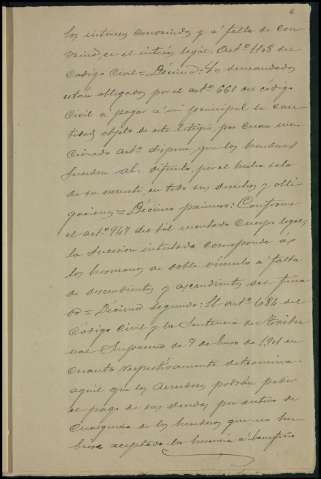 6
los intereses convenidos y á falta de con
venio, en el interés legal. Artº 1108 del
Codigo Civil = Décimo: Los demandados
estan obligados por el artº 661 del código
Civil a pagar á mi principal la can
tidad objeto de este litigio por cuan
cionado artº dispone que los herederos
suceden al difunto, por el hecho solo
de su muerte, en todos sus derechos y obli
gaciones = Décimo primero: Conforme
el artº 947 del tal mentado Cuerpo legal
la sucesion intestada corresponde á
los hermanos de doble vínculo á falta
de descendientes y ascendientes del fina
do = Décimo segundo: El artº 1084 del
Código Civil y la Sentencia del Tribu
nal Supremo de 7 de Enero de 1901 en
cuanto respectivamente determinan
aquel que los acreedores podrán pedir
el pago de sus deudas por entero de
cualquiera de los herederos que no hu
biere aceptado la herencia á beneficio